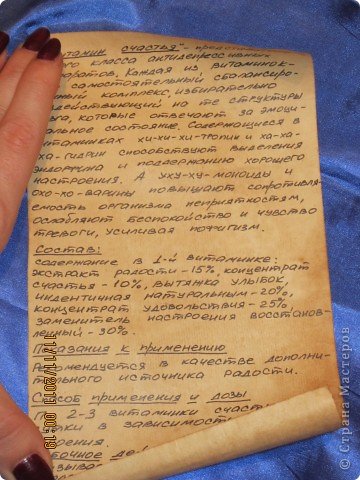 "Витамин счастья" - предст
ого класса антидепрессивных
паратов. Каждая из витаминок -
самостоятельный, сбалансиро-
ный комплекс, избирательно
действующий на те структуры
га, которые отвечают за эмоци-
альное состояние. Содержащиеся в
витаминках хи-хи-хи-тропин и ха-ха-
ха-гидрин способствуют выделения
эндорфина и поддержанию хорошего
настроения. А уху-ху-моноиды и
охо-хо-варины повышают сопротивля-
емость организма неприятностям,
ослабляют беспокойство и чувство
тревоги, усиливая пофигизм.
Состав:
содержание в 1-й витаминке:
экстракт радости - 15%, концентрат
счастья - 10%, вытяжка улыбок,
идентичная натуральным - 20%,
концентрат удовольствия - 25%,
заменитель настроения восстанов-
ленный - 30%.
Показания к применению
Рекомендуется в качестве дополни-
тельного источника радости.
Способ применения и дозы
По 2-3 витаминки счаст
тки в зависимост
роения.
бочное де
зыва
11/11/2011 00:19
© Страна Мастеров